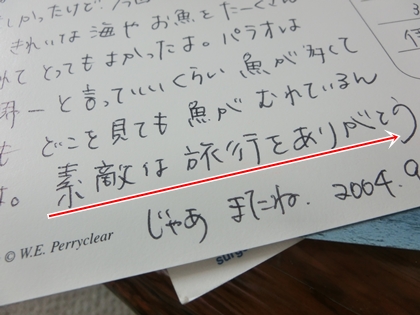 しかったけど
きれいな海やお魚をたーくさん
れてとってもよかったよ。パラオは
界一と言っていいくらい魚が多くて
も どこを見ても魚がむれているん
よ。 素敵な旅行をありがとう
じゃあ またね. 2004.9
© W.E. Perryclear